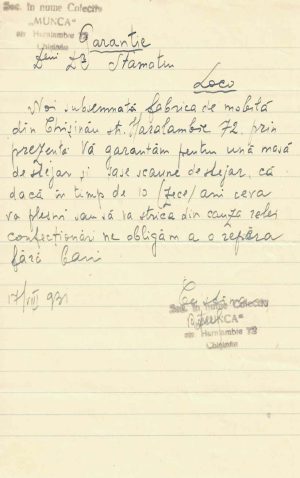 Soc. în nume Colectiv
"MUNCA"
str. Haralambie 72
Chișinău
Garanție
Stamatiu
Loco
Noi subsemnata fabrica de mobilă
din Chișinău str. Haralambie 72. prin
prezenta Vă garantăm pentru una masă
de stejar și șase scaune de stejar, că
dacă în timp de 10 /zece/ ani ceva
va plesni sau să va strica din cauza relei
confecționări ne obligăm a o repăra
fără bani
17/VIII 931
Soc. în nume Colectiv
"MUNCA"
str. Haralambie 72
Chișinău